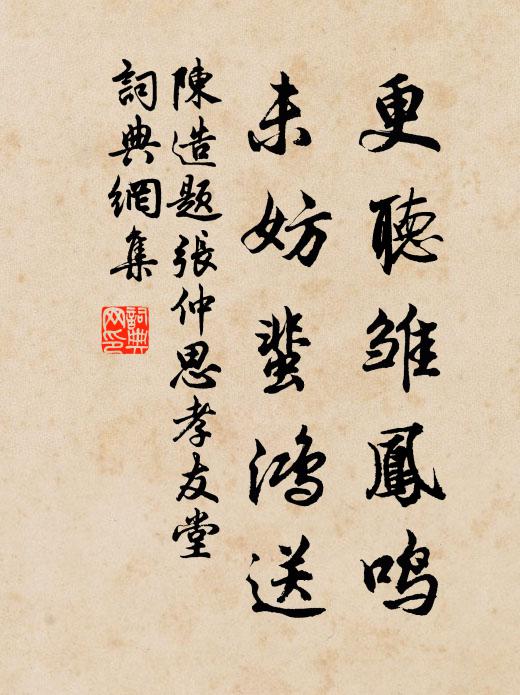 更聽雏鳳鸣
未妨蜚鴻送
陳造題張仲思孝友堂
詞典網集
詞典网印